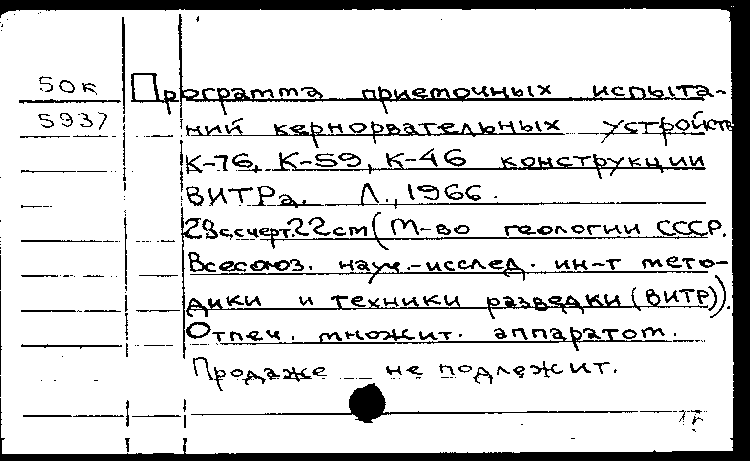 50к Программа приемочных испыта-
5937 ний кернорвательных устройств
К-76, К-59, К-46 конструкции
ВИТРа. Л., 1966.
29с.с черт. 22 ст (М-во геологии СССР.
Всесоюз. науч.-исслед. ин-т мето-
дики и техники разведки (ВИТР)).
Отпеч. множит. аппаратом.
Продаже не подлежит.